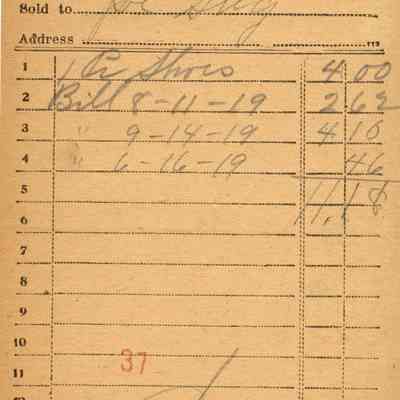 Sold to
Address 113
1 1 Pr Shoes 4 00
2 Bill 8-11-19 2 62
3 " 9-14-19 4 10
4 " 6-16-19 46
5 11.18
6
7
8
9
10
37
11